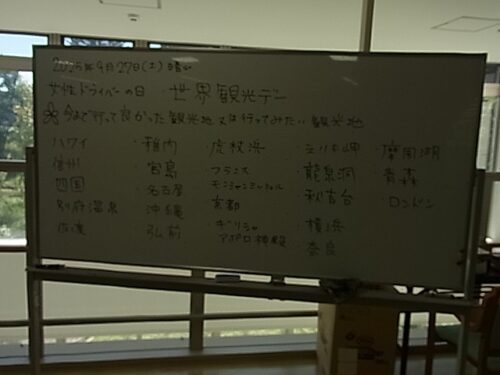 2025年9月27日(土)
女性ドライバーの日 ・世界観光デー
今まで行って良かった観光地又は行ってみたい観光地
ハワイ
信州
四国
別府温泉
・稚内
・宮島
・名古屋
・沖縄
・弘前
・虎杖浜
・フランス
モンサンミッシェル
・京都
・ギリシャ
アポロ神殿
・えりも岬
・龍泉洞
・秋吉台
・横浜
・奈良
・摩周湖
・青森
・ロンドン